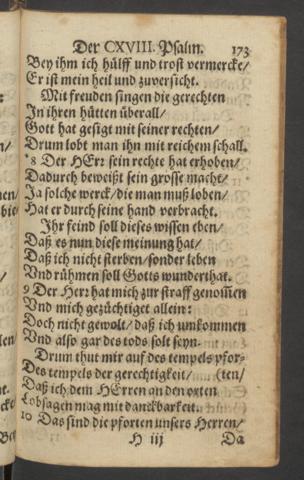 Der CXVIII. Psalm. 173
Bey ihm ich hülff und trost vermercke/
Er ist mein heil und zuversicht.
Mit freuden singen die gerechten
In ihren hütten überall/
Gott hat gesigt mit seiner rechten/
Drum lobt man ihn mit reichem schall.
*8 Der HErr sein rechte hat erhoben/
Dadurch beweißt sein grosse macht/
Ja solche werck/ die man muß loben/
Hat er durch seine hand verbracht.
Ihr feind soll dieses wissen eben/
Daß es nun diese meinung hat/
Daß ich nicht sterben/ sonder leben
Vnd rühmen soll Gotts wunderthat.
9 Der Herr hat mich zur straff genom̃en
Vnd mich gezüchtiget allein:
Doch nicht gewolt/ daß ich umkommen
Vnd also gar des tods solt seyn.
Drum thut mir auf des tempels pfor-
Des tempels der gerechtigkeit/ (ten/
Daß ich dem HErren an den orten
Lobsagen mag mit danckbarkeit.
10 Das sind die pforten unsers Herren/
H iij Da